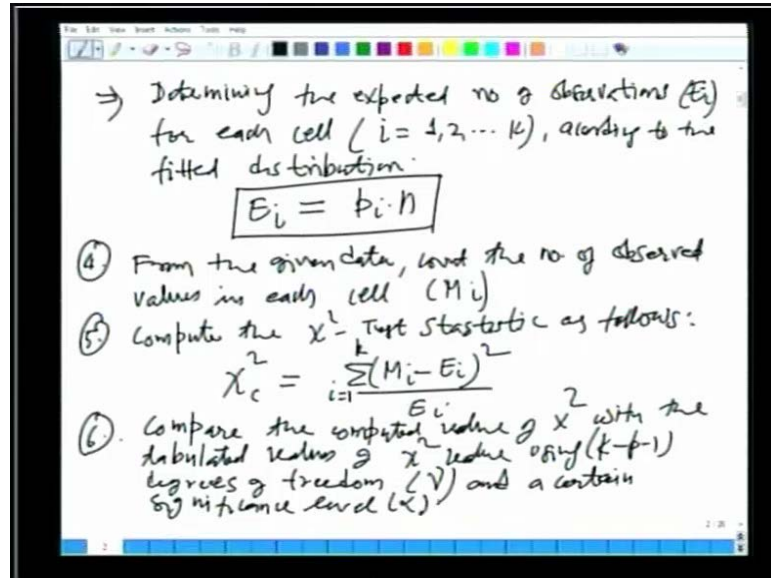 File Edit View Insert Actions Tools Help
⇒ Determining the expected no of observations (Ei)
for each cell (i = 1,2 ... k), according to the
fitted distribution.
Ei = pi.n
④ From the given data, count the no of observed
values in each cell (Mi)
⑤ Compute the χ²- Test Stastistic as follows:
χc² = Σ i=1 k (Mi - Ei)² / Ei
⑥. Compare the computed value of χ² with the
tabulated values of χ² value using (k-p-1)
degrees of freedom (ν) and a certain
significance level (α)
2 / 28
2